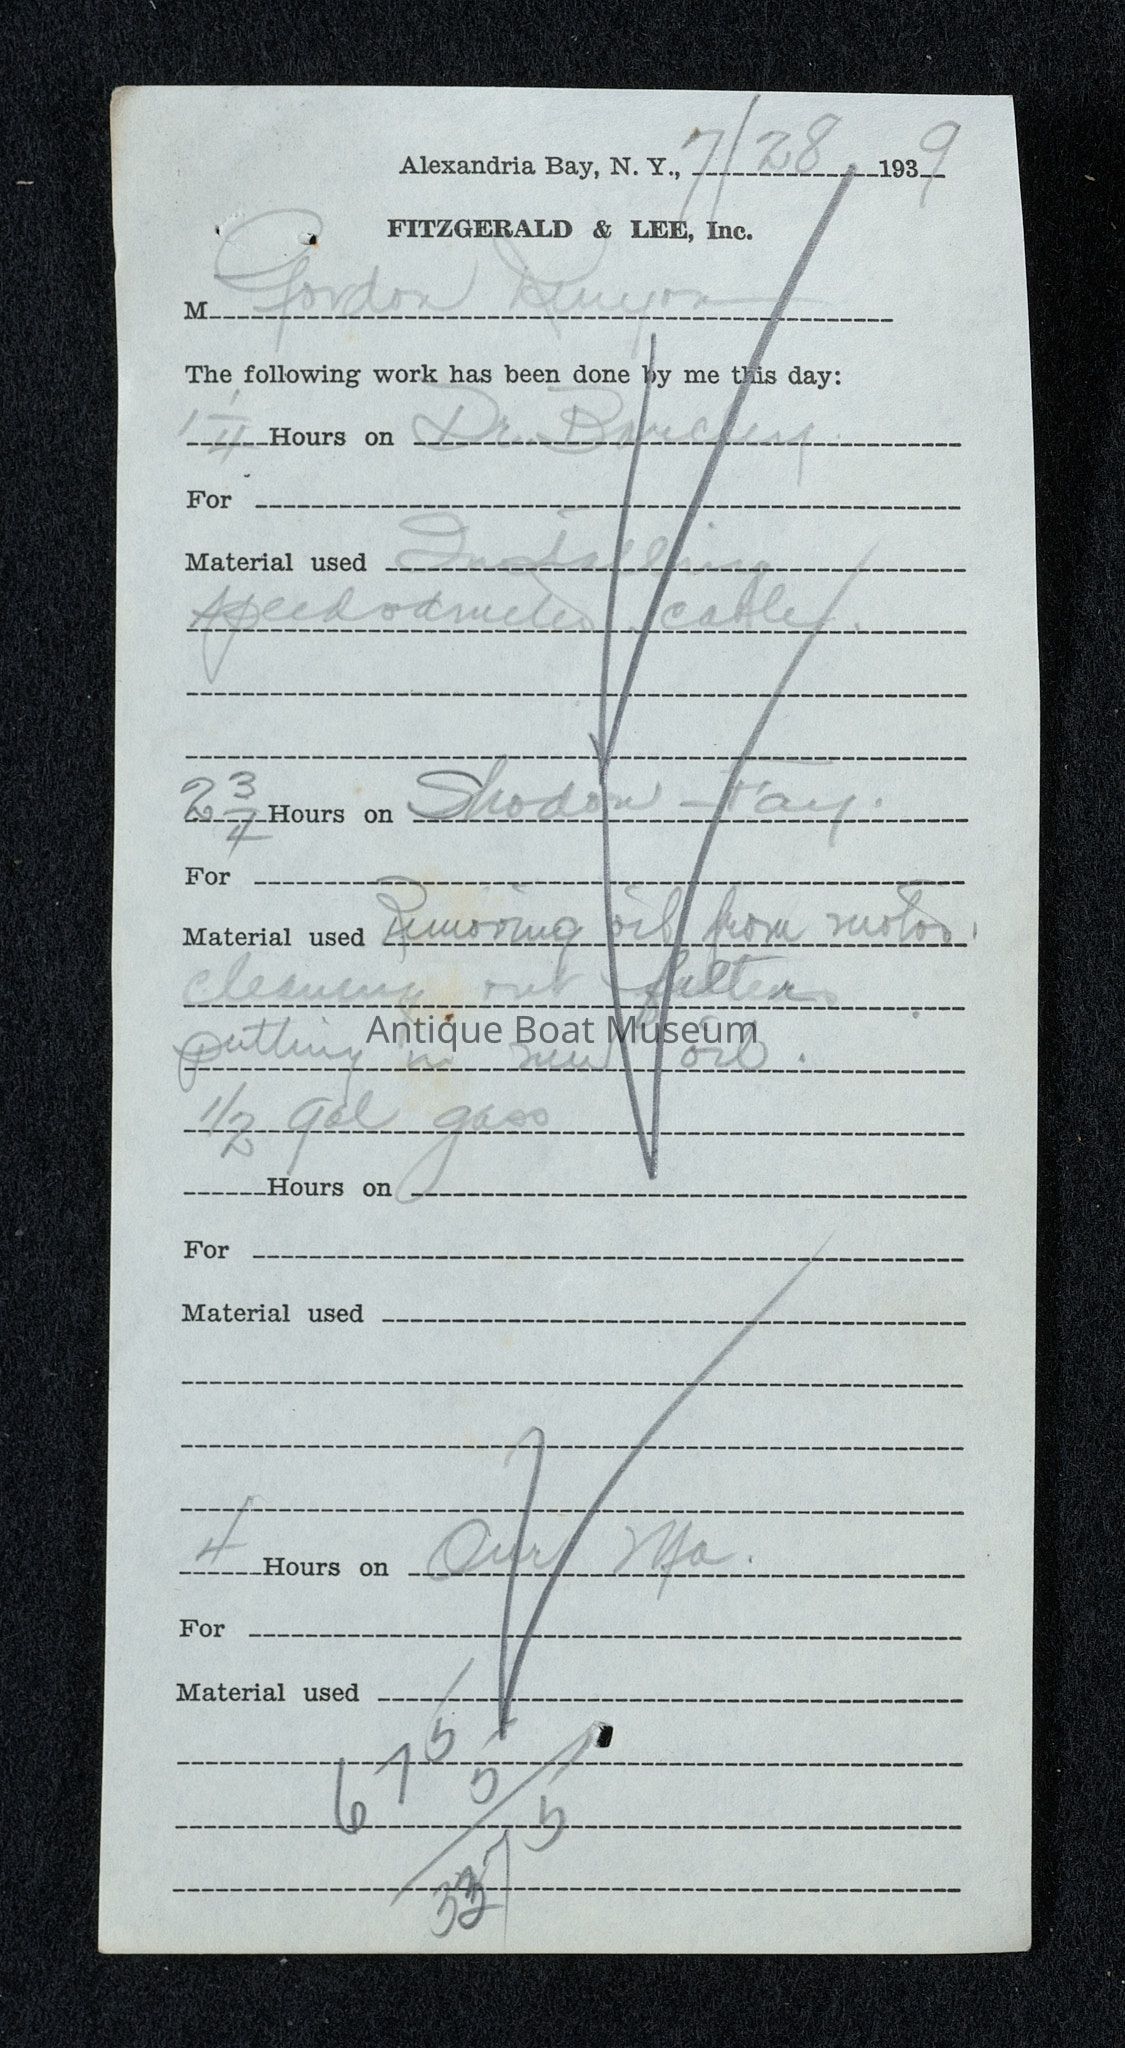 Alexandria Bay, N. Y., 7/28 1939
FITZGERALD & LEE, Inc.
M Gordon Kenyon
The following work has been done by me this day:
1 1/4 Hours on Dr.
For
Material used Installing
speedometer cable.
2 3/4 Hours on Shadow Fay.
For
Material used Removing oil from motor.
cleaning out filters
Antique Boat Museum
putting in new oil.
1/2 gal gass
Hours on
For
Material used
4 Hours on Our
For
Material used
6 75
5
337 5